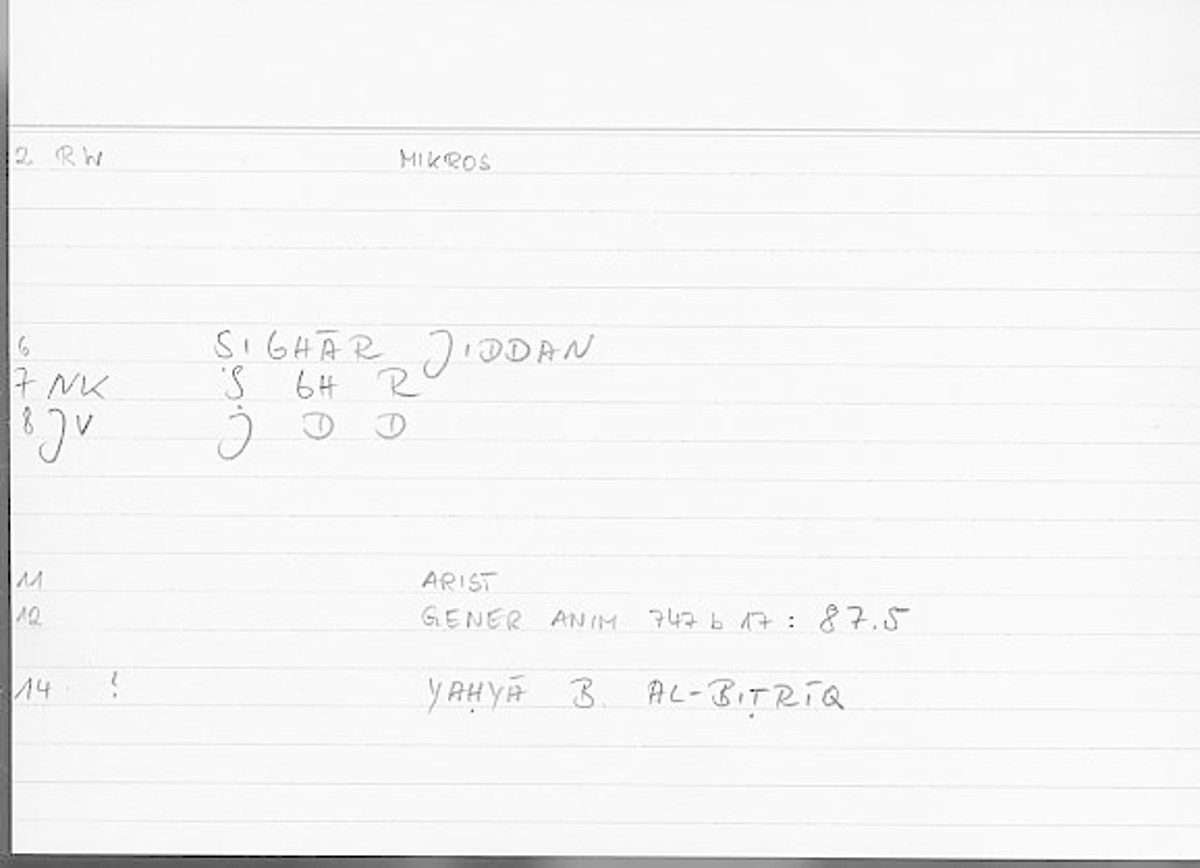 2 RW MIKROS
6 SIGHĀR JIDDAN
7 NK Ṣ GH R
8 JV J D D
11 ARIST
12 GENER ANIM 747 b 17 : 87.5
14 ! YAḤYĀ B. AL-BIṬRĪQ